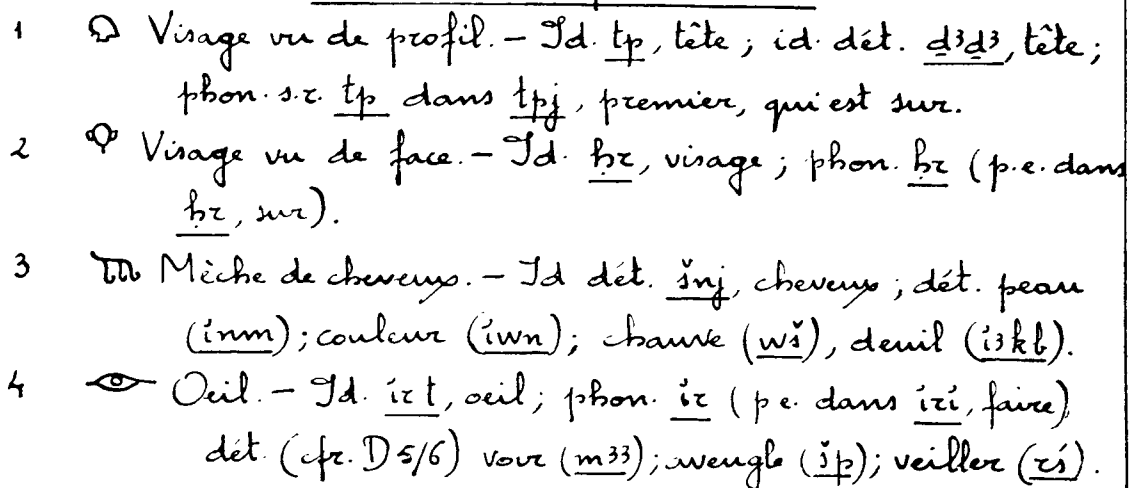 1 𓁶 Visage vu de profil. – Id. tp, tête ; id. dét. ḏ3ḏ3, tête ;
phon. s.r. tp dans tpj, premier, qui est sur.
2 𓁷 Visage vu de face. – Id. ḥr, visage ; phon. ḥr (p.e. dans
ḥr, sur).
3 𓁸 Mèche de cheveux. – Id dét. šnj, cheveux ; dét. peau
(ínm) ; couleur (íwn) ; chauve (wš), deuil (í3kb).
4 𓁹 Oeil. – Id. írt, oeil ; phon. ír (p.e. dans írí, faire)
dét. (cfr. D 5/6) voir (m33) ; aveugle (šp) ; veiller (rś).